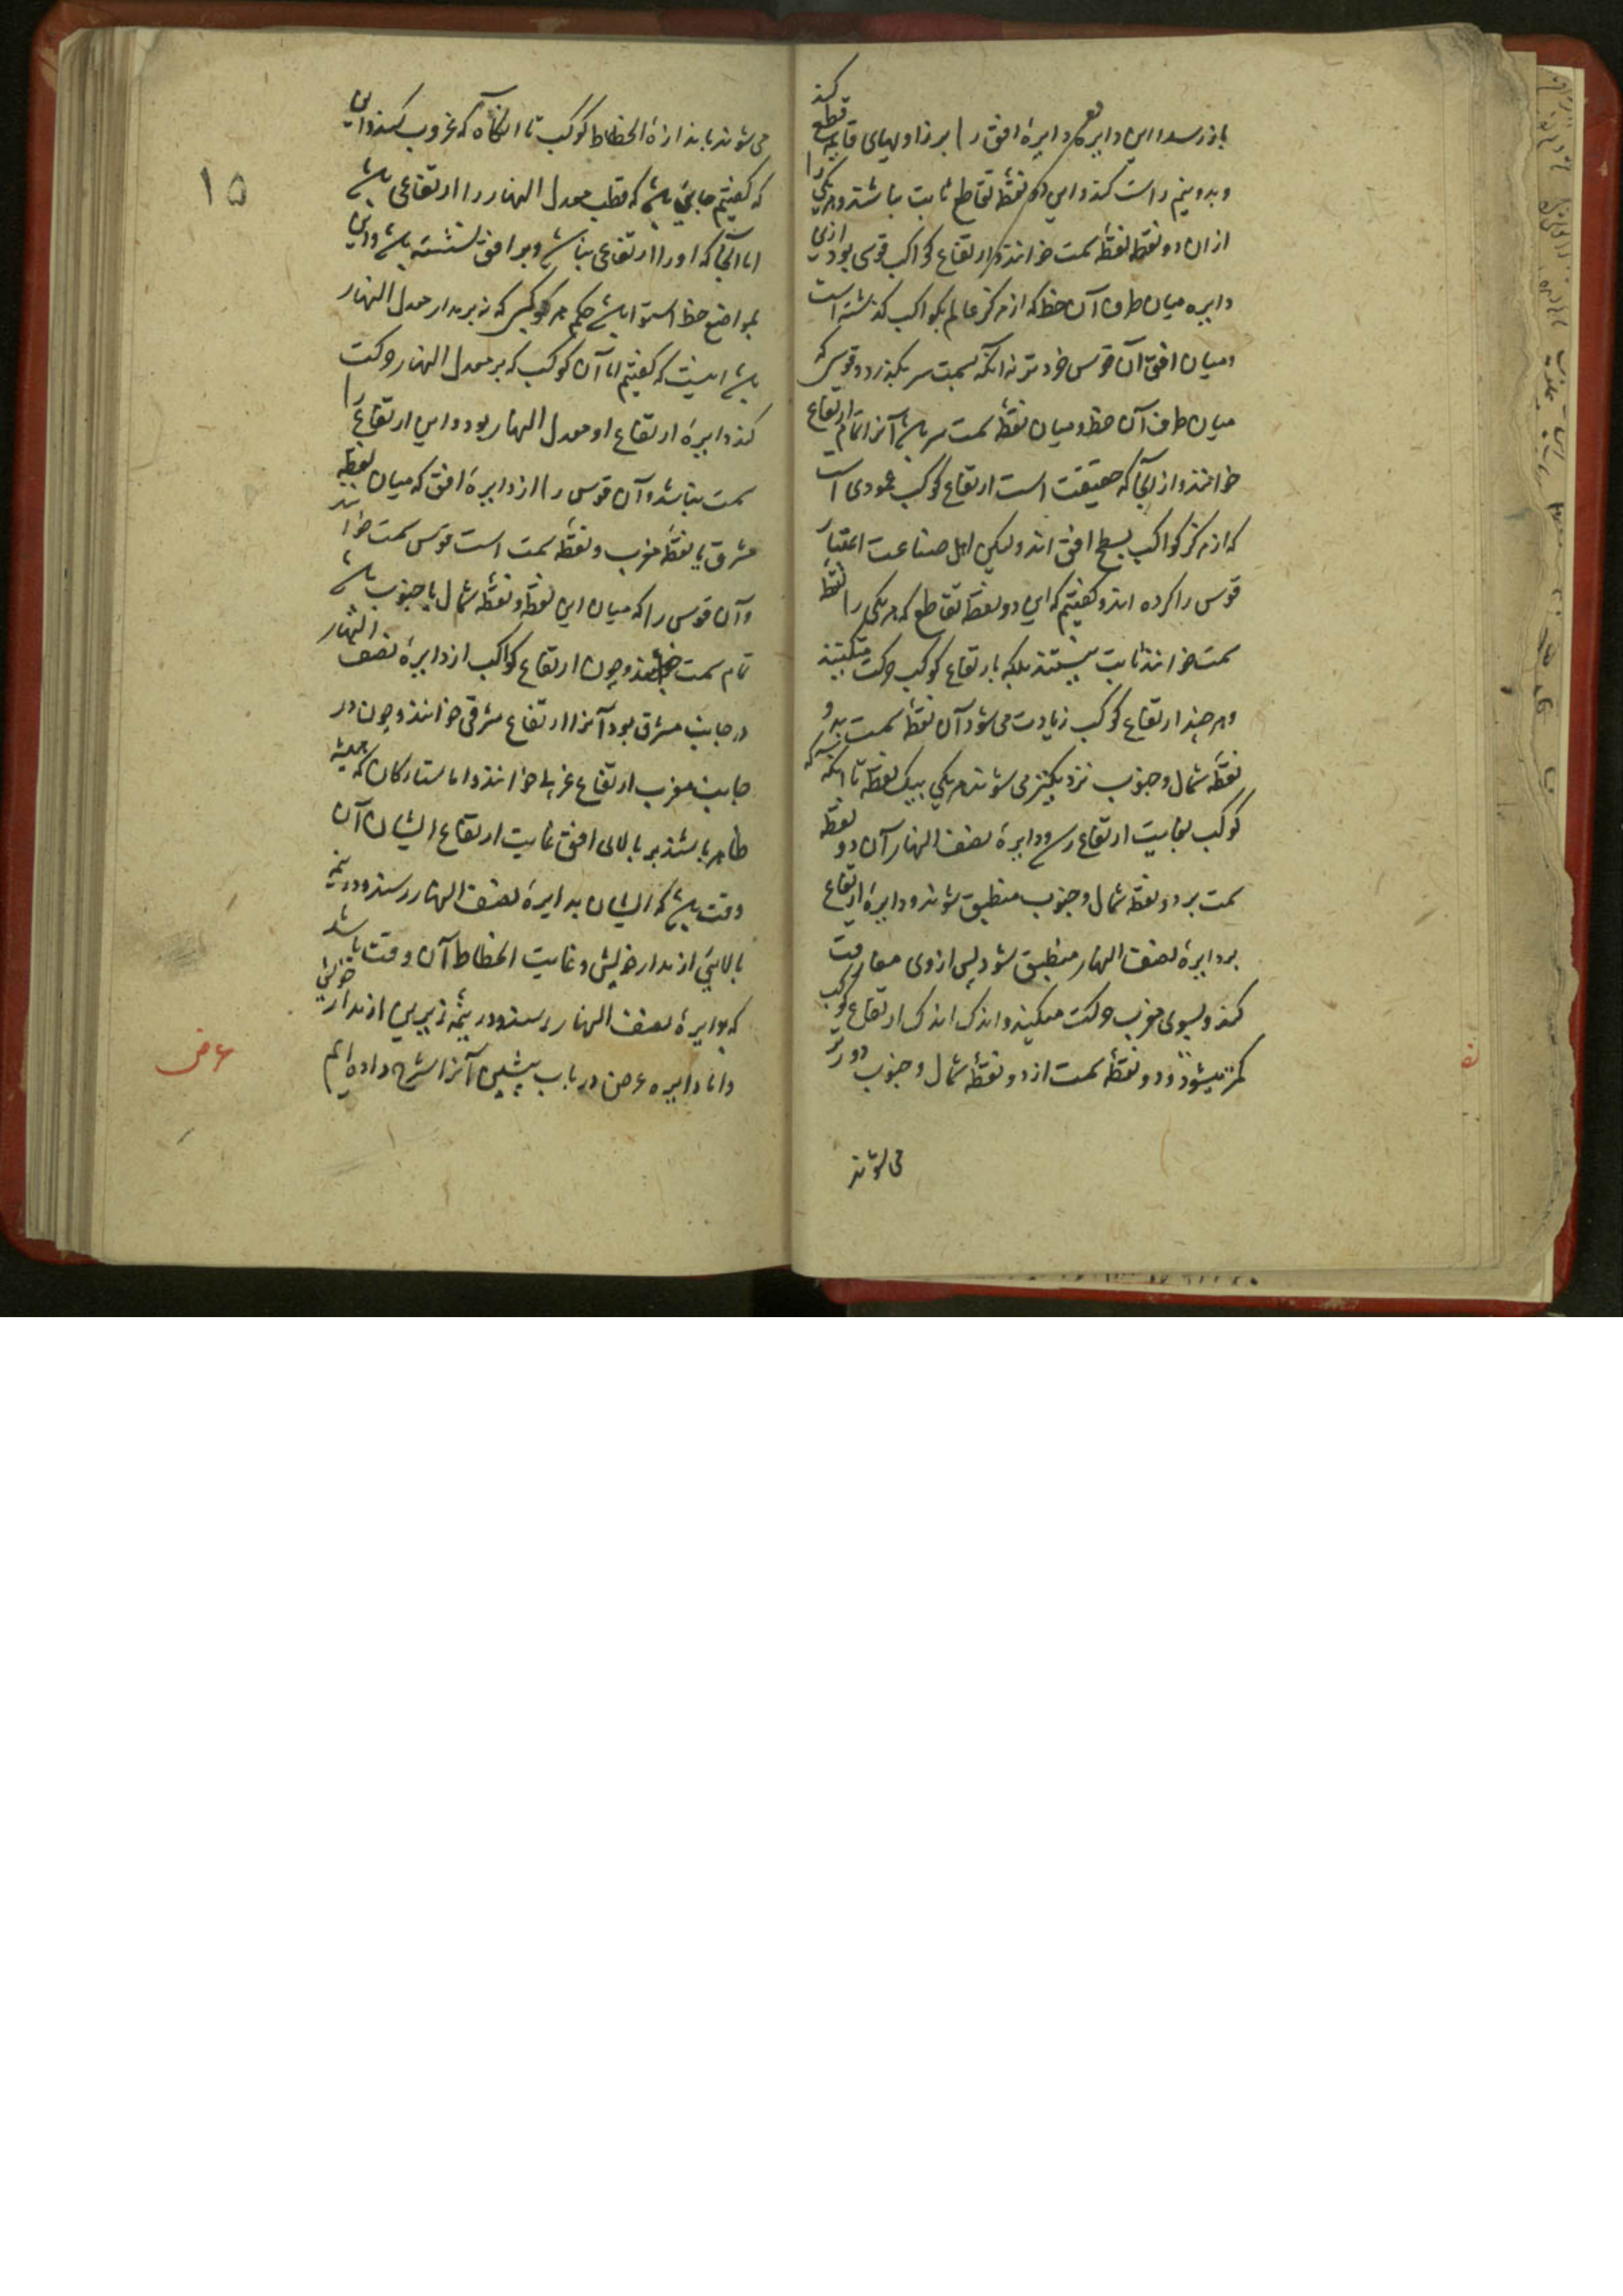 باز رسد این دایره دایرهٔ افق را بر زاویهای قایمه قطع کند
و بدو نیم راست کند و این دو نقطهٔ تقاطع ثابت نباشند و هر یکی را
ازان دو نقطه نقطهٔ سمت خوانند و ارتفاع کواکب قوسی بود ازین
دایره میان طرف آن خط که از مرکز عالم بکواکب گذشته است
و میان افق آن قوس خردتر نه آنکه بسمت سر بگذرد و قوسی که
میان طرف آن خط و میان نقطهٔ سمت سر باشد آنرا تمام ارتفاع
خوانند و از آنجا که حقیقت است ارتفاع کوکب عمودی است
که از مرکز کواکب بسطح افق اند ولیکن اهل صناعت اعتبار
قوس را کرده اند و گفتیم که این دو نقطهٔ تقاطع که هر یکی را نقطهٔ
سمت خوانند ثابت نیستند بلکه بارتفاع کوکب حرکت میکنند
و هر چند ارتفاع کوکب زیادت می شود آن نقطهٔ سمت بدو
نقطهٔ شمال و جنوب نزدیکتر می شوند هر یکی بیک نقطه تا آنکه که
کوکب بغایت ارتفاع رسد و دایرهٔ نصف النهار آن دو نقطهٔ
سمت بر دو نقطهٔ شمال و جنوب منطبق شوند و دایرهٔ ارتفاع
بر دایرهٔ نصف النهار منطبق شود پس از وی مفارقت
کند و بسوی مغرب حرکت میکند و اندک اندک ارتفاع کوکب
کمتر میشود و دو نقطهٔ سمت از دو نقطهٔ شمال و جنوب دورتر
می شوند
۱۵
می شوند باندازهٔ انحطاط کوکب تا آنگاه که غروب کند و این
که گفتیم جایی باشد که قطب معدل النهار را ارتفاعی باشد
اما آنجا که او را ارتفاعی نباشد و بر افق نشسته باشد و این
بمواضع خط استوا باشد حکم هر کوکبی که نه بر مدار معدل النهار
باشد اینست که گفتیم اما آن کوکب که بر معدل النهار حرکت
کند دایرهٔ ارتفاع او معدل النهار بود و این ارتفاع را
سمت نباشد و آن قوس را از دایرهٔ افق که میان نقطهٔ
مشرق یا نقطهٔ مغرب و نقطهٔ سمت است قوس سمت خوانند
و آن قوس را که میان این نقطه و نقطهٔ شمال یا جنوب باشد
تمام سمت خوانند و چون ارتفاع کواکب از دایرهٔ نصف النهار
در جانب مشرق بود آنرا ارتفاع شرقی خوانند و چون در
جانب مغرب ارتفاع غربی خوانند و اما ستارگان که همیشه
ظاهر باشند بر بالای افق غایت ارتفاع ایشان آن
وقت باشد که ایشان بدایرهٔ نصف النهار رسند و در نیمهٔ
بالایین از مدار خویش و غایت انحطاط آن وقت باشد
که بدایرهٔ نصف النهار رسند و در نیمهٔ زیرین از مدار خویش
و اما دایرهٔ عرض در باب پیشین آنرا شرح داده ایم
عرض